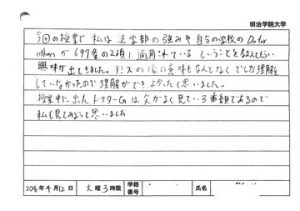 明治学院大学
今回の授業で私は法学部の強みや自分の学校のDo for
othersが 699条の2項に適用されている ということを教えてもらい
興味が出てきました。 の信の意味もなんとなくでしか理解を
していなかったので理解ができてよかったと思いました。
授業中に出たドクターGは父がよく見ている番組であるので
私も見てみようと思いました
2015年4月12日 火曜3時限 学籍番号 氏名